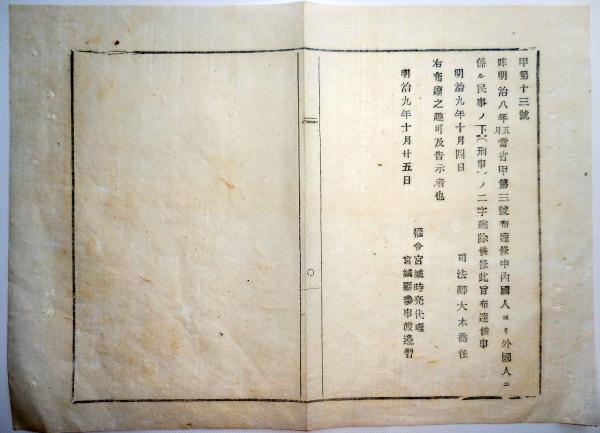 甲第十三號
昨明治八年五月當省甲第三號布達條中內國人ヨリ外國人ニ
係ル民事ノ下(刑事)ノ二字刪除候條此旨布達候事
明治九年十月四日
司法卿大木喬任
右布達之趣可及告示者也
明治九年十月廿五日
權令宮城時亮代理
宮城縣參事渡邊